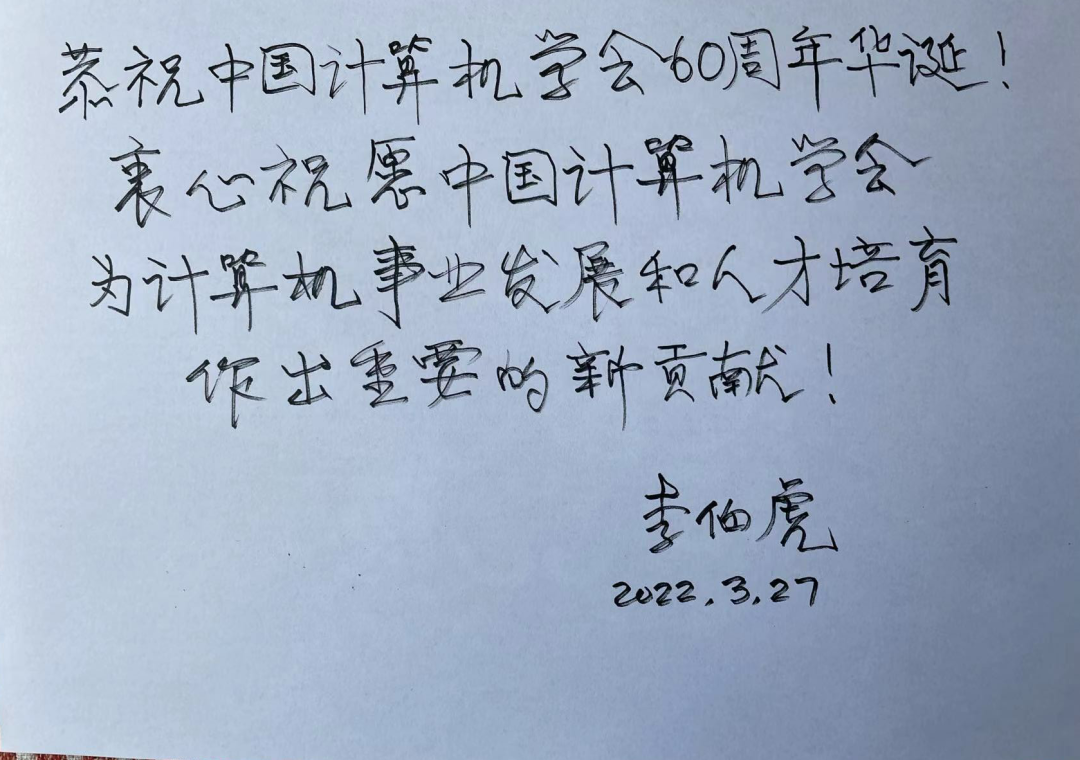 恭祝中国计算机学会60周年华诞！
衷心祝愿中国计算机学会
为计算机事业发展和人才培育
作出重要的新贡献！
李伯虎
2022.3.27